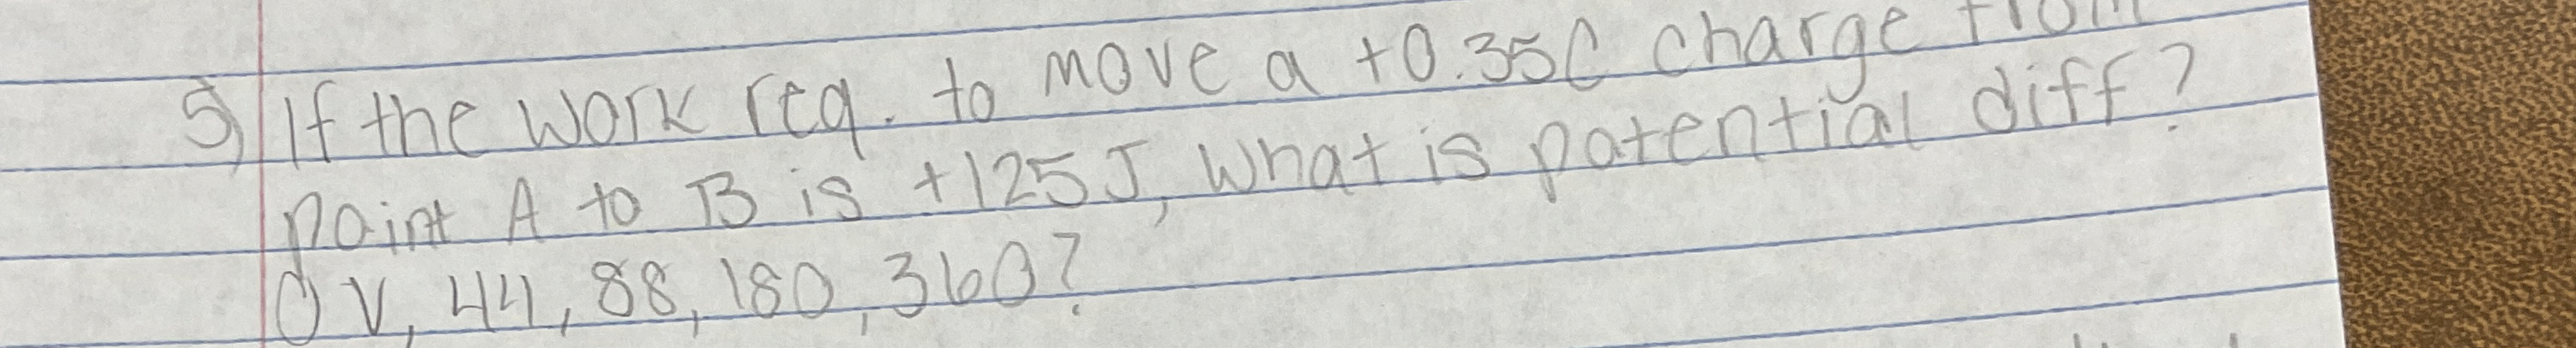 5) If the work req. to move a +0.35C charge from
point A to B is +125J, what is potential diff?
0 V, 44, 88, 180, 360?